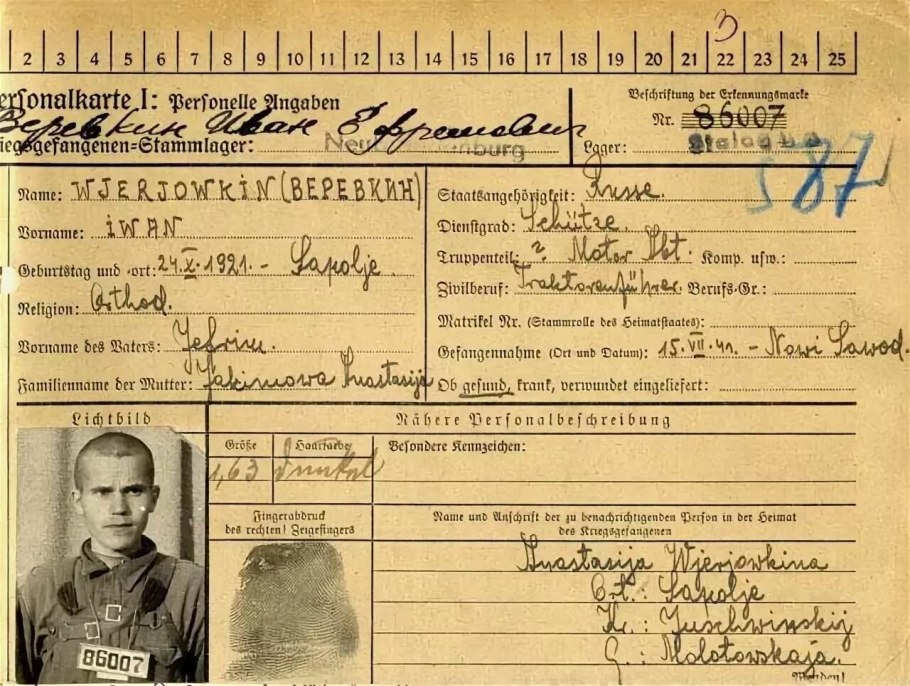 3
2 3 4 5 6 7 8 9 10 11 12 13 14 15 16 17 18 19 20 21 22 23 24 25
ersonalkarte I: Personelle Angaben
Beschriftung der Erkennungsmarke
Веревкин Иван Ефремович
Nr. 86007
iegsgefangenen-Stammlager:
Lager: Stalag
587
Name: WJERJOWKIN (ВЕРЕВКИН)
Staatsangehörigkeit: Russe.
Vorname: IWAN
Dienstgrad: Schütze.
Truppenteil: ? Motor Abt. Komp. usw.:
Geburtstag und -ort: 24.X.1921. - Sapolje.
Zivilberuf: Traktorenführer. Berufs-Gr.:
Religion: Orthod.
Matrikel Nr. (Stammrolle des Heimatstaates):
Vorname des Vaters: Jefrim.
Gefangennahme (Ort und Datum): 15.VII.41. - Nowi Sawod.
Familienname der Mutter: Jakimowa Anastasija
Ob gesund, krank, verwundet eingeliefert:
Lichtbild
Nähere Personalbeschreibung
Größe
Haarfarbe
Besondere Kennzeichen:
1,63
dunkel
Fingerabdruck
des rechten! Zeigefingers
Name und Anschrift der zu benachrichtigenden Person in der Heimat
des Kriegsgefangenen
Anastasija Wjerjowkina
Ort.: Sapolje
Kr.: Juschwinskij
G.: Molotowskaja.
86007